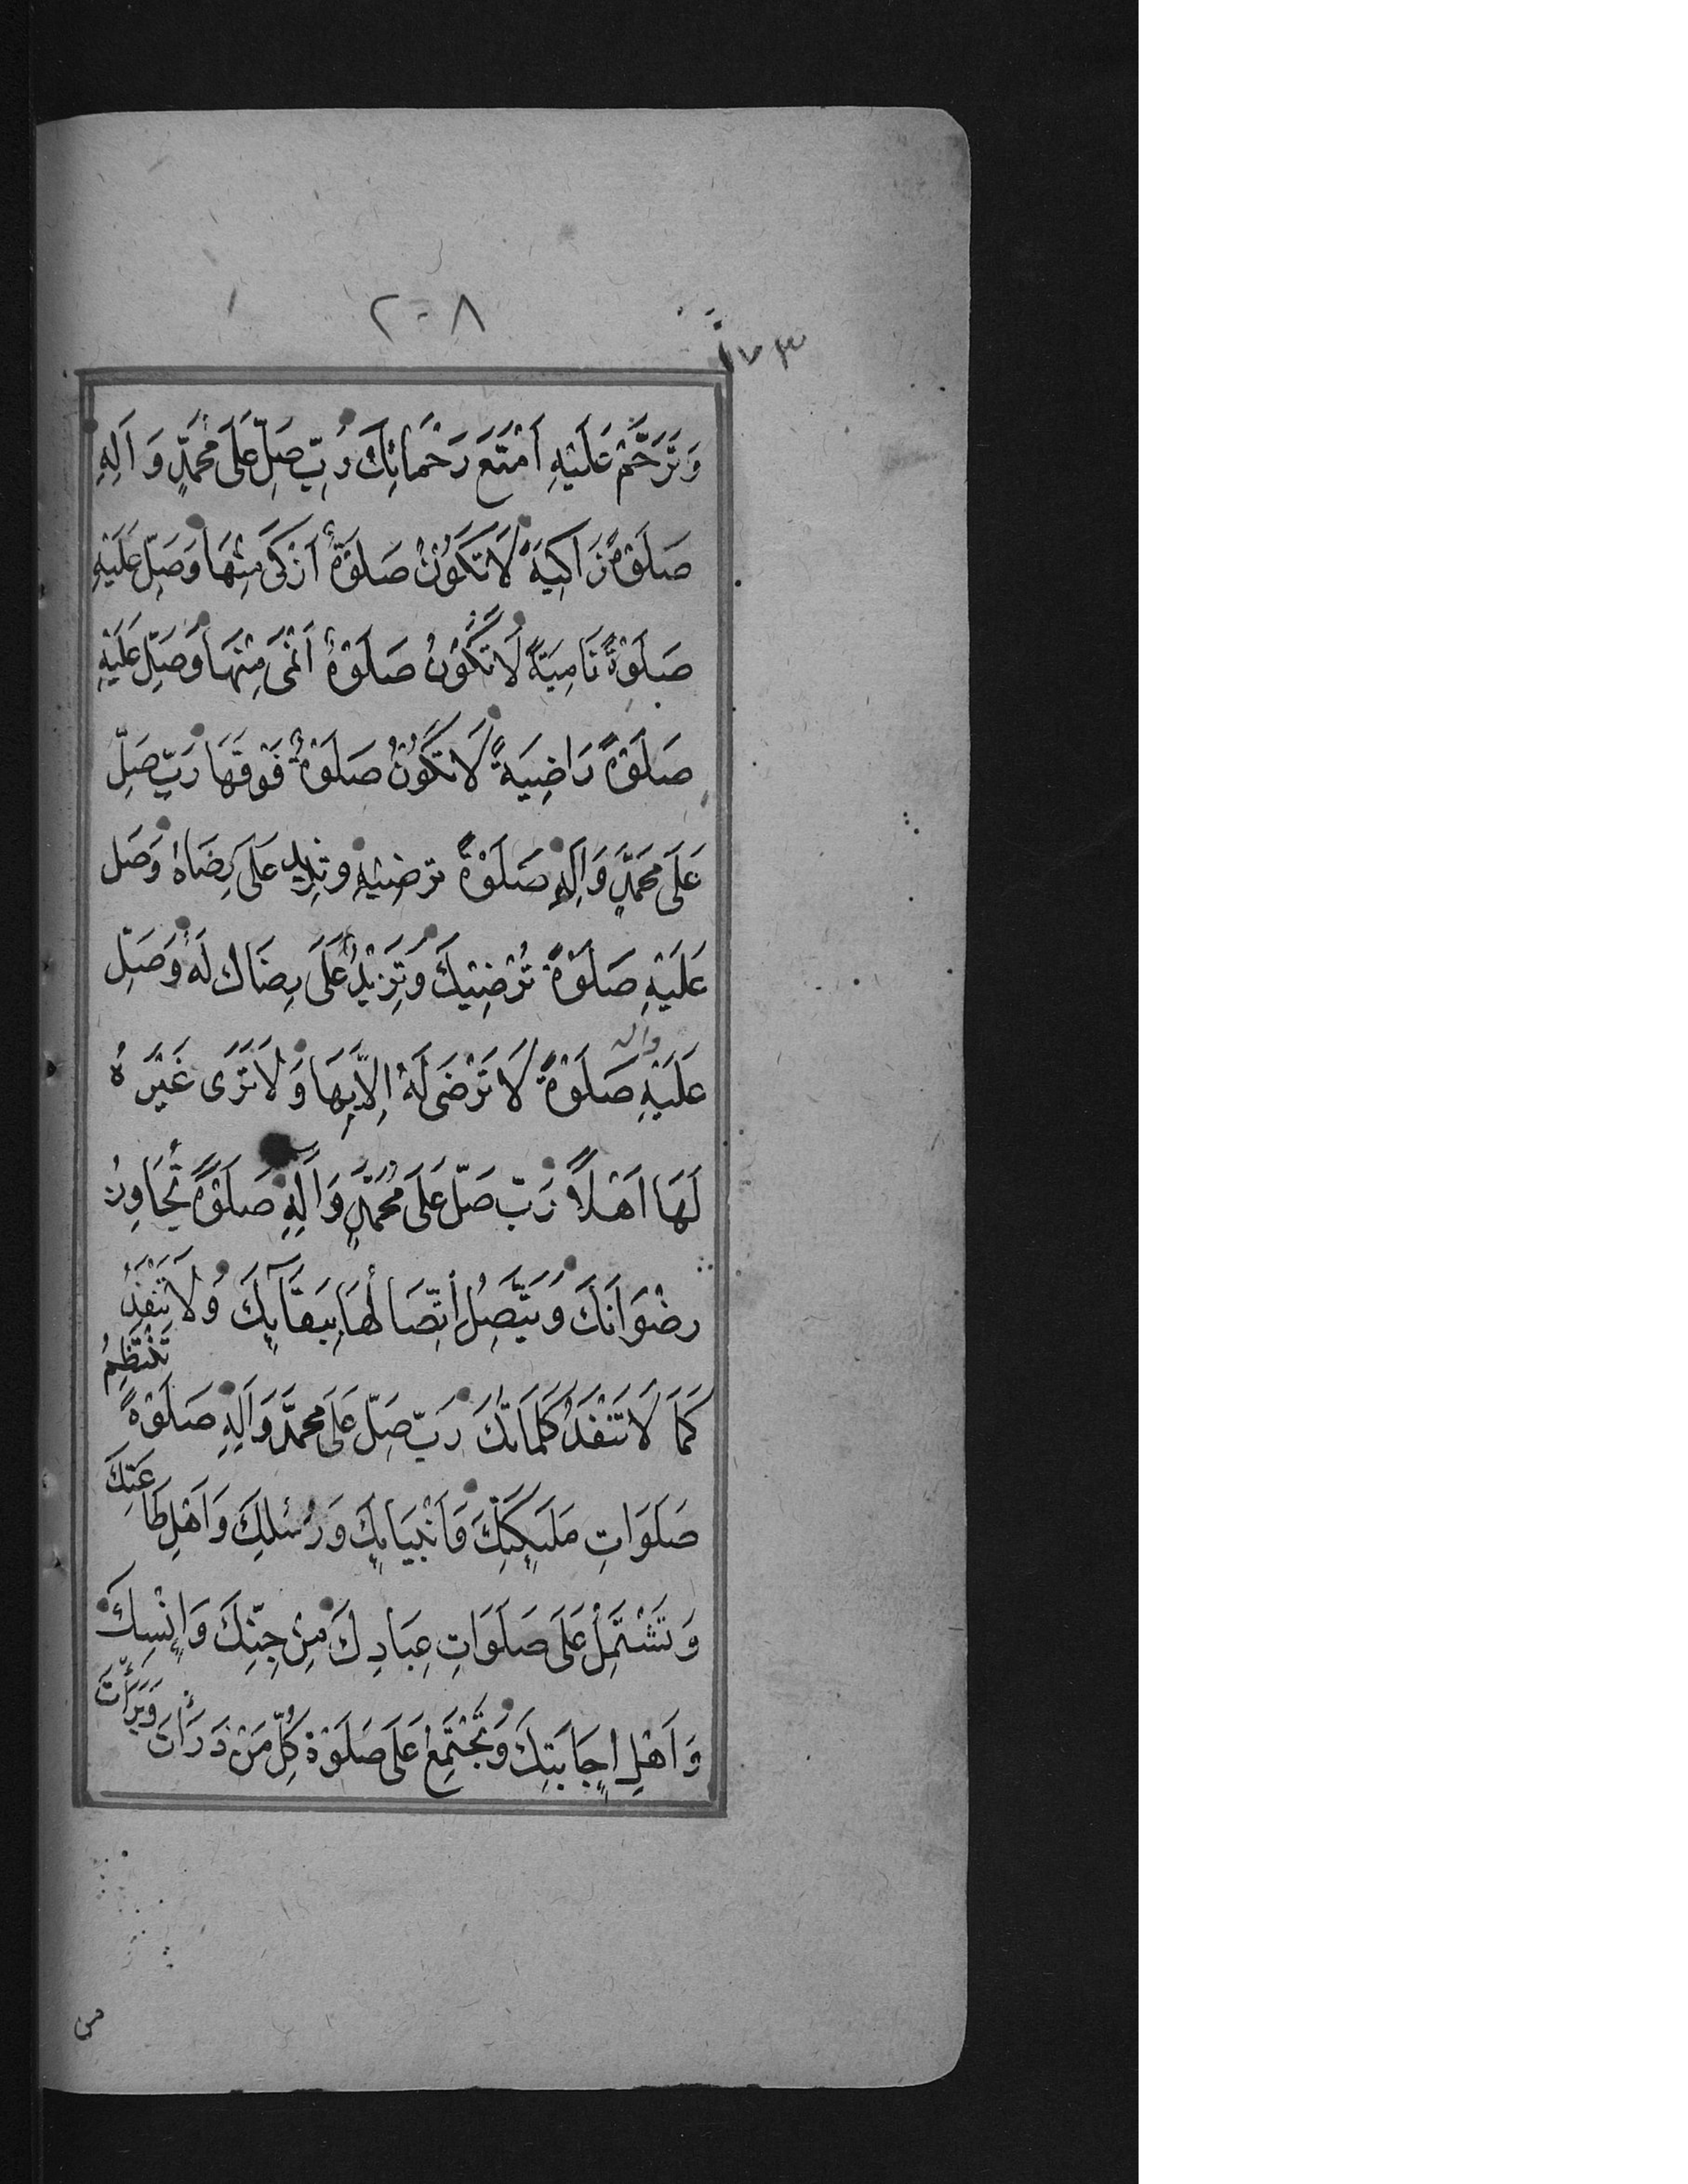 ٢٠٨
١٧٣
وَتَرَحَّمْ عَلَيْهِ اَمْتَعَ رَحَمَاتِكَ رَبِّ صَلِّ عَلَى مُحَمَّدٍ وَاٰلِهِ
صَلَوةً زَاكِيَةً لَا تَكُوْنُ صَلَوةٌ اَزْكَى مِنْهَا وَصَلِّ عَلَيْهِ
صَلَوةً نَامِيَةً لَا تَكُوْنُ صَلَوةٌ اَنْمَى مِنْهَا وَصَلِّ عَلَيْهِ
صَلَوةً رَاضِيَةً لَا تَكُوْنُ صَلَوةٌ فَوْقَهَا رَبِّ صَلِّ
عَلَى مُحَمَّدٍ وَاٰلِهِ صَلَوْةً ترضيْهِ وتزيد عَلَى رِضَاهُ وَصَل
عَلَيْهِ صَلَوْةً تُرْضِيْكَ وَتَزِيْدُ عَلَى رِضَاك لَهُ وَصَلِّ
واله
عَلَيْهِ صَلَوْةً لَا تَرْضَى لَهُ اِلَّا بِهَا وَلَا تَرَى غَيْرَهُ
لَهَا اَهْلًا رَبّ صَلّ عَلَى مُحَمَّدٍ وَاٰلِهِ صَلَوةً تُجَاوِزُ
رِضْوَانَكَ وَيَتَّصِلُ اتِّصَالُهَا بِبَقَآئِكَ وَلَا تَنْفَدُ
كَمَا لَا تَنْفَدُ كَلِمَاتُكَ رَبّ صَلّ عَلَى مُحَمَّد وَاٰلِهِ صَلَوْةً تَنْتَظِمُ
صَلَوَاتِ مَلٰئِكَتِكَ وَاَنْبِيَائِكَ وَرُسُلِكَ وَاَهْلِ طَاعَتِكَ
وَتَشْتَمِلُ عَلَى صَلَوَاتِ عِبَادِكَ مِنْ جِنِّكَ وَاِنْسِكَ
وَاَهْلِ اِجَابَتِكَ وَتَجْتَمِعُ عَلَى صَلَوْةِ كُلِّ مَنْ ذَرَأْتَ وَبَرَأْتَ
من